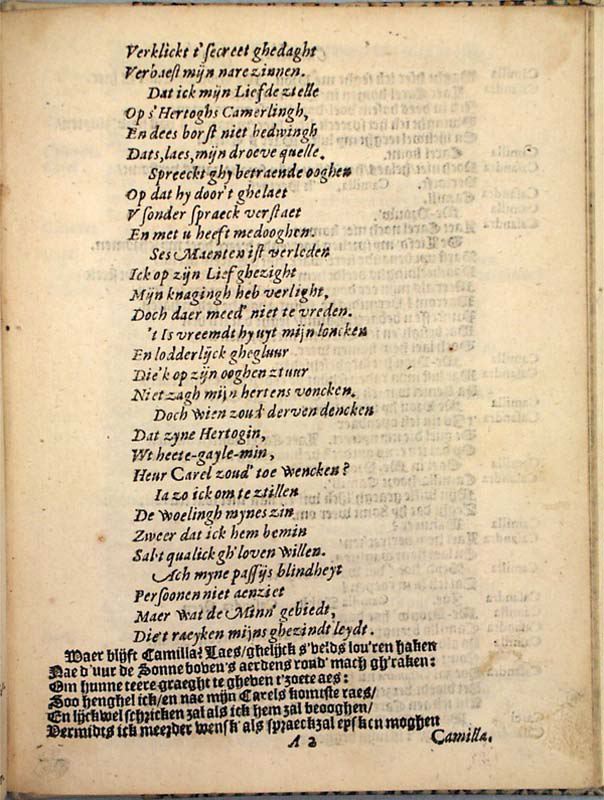 Verklickt t'secreet ghedaght
Verbaest mijn nare zinnen.
Dat ick mijn Liefde ztelle
Op s'Hertoghs Camerlingh,
En dees borst niet bedwingh
Dats, laes, mijn droeve quelle.
Spreeckt ghy betraende ooghen
Op dat hy door't ghelaet
V sonder spraeck verstaet
En met u heeft medooghen.
Ses Maenten ist verleden
Ick op zijn Lief ghezight
Mijn knagingh heb verlight,
Doch daer meed' niet te vreden.
't Is vreemdt hy uyt mijn loncken
En lodderlijck ghegluur
Die'k op zijn ooghen ztuur
Niet zagh mijn hertens voncken.
Doch wien zoud' derven dencken
Dat zyne Hertogin,
Wt heete-gayle-min,
Heur Carel zoud' toe wencken?
Ia zo ick om te ztillen
De woelingh mynes zin
Zweer dat ick hem bemin
Sal't qualick gh'loven willen.
Ach myne passijs blindheyt
Persoonen niet aenziet
Maer wat de Minn' gebiedt,
Die't raeyken mijns ghezindt leydt.
Waer blijft Camilla? Laes/ ghelijck s'velds lou'ren haken
Nae d'uur de Sonne boven's aerdens rond' mach gh'raken:
Om hunne teere graeght te gheben t'zoete aes:
Soo henghel ick/ en nae mijn Carels komste raes/
En lijckwel schricken zal als ick hem zal beooghen/
Vermidts ick meerder wensk' als spraeckzal eysken moghen
A 2
Camilla.